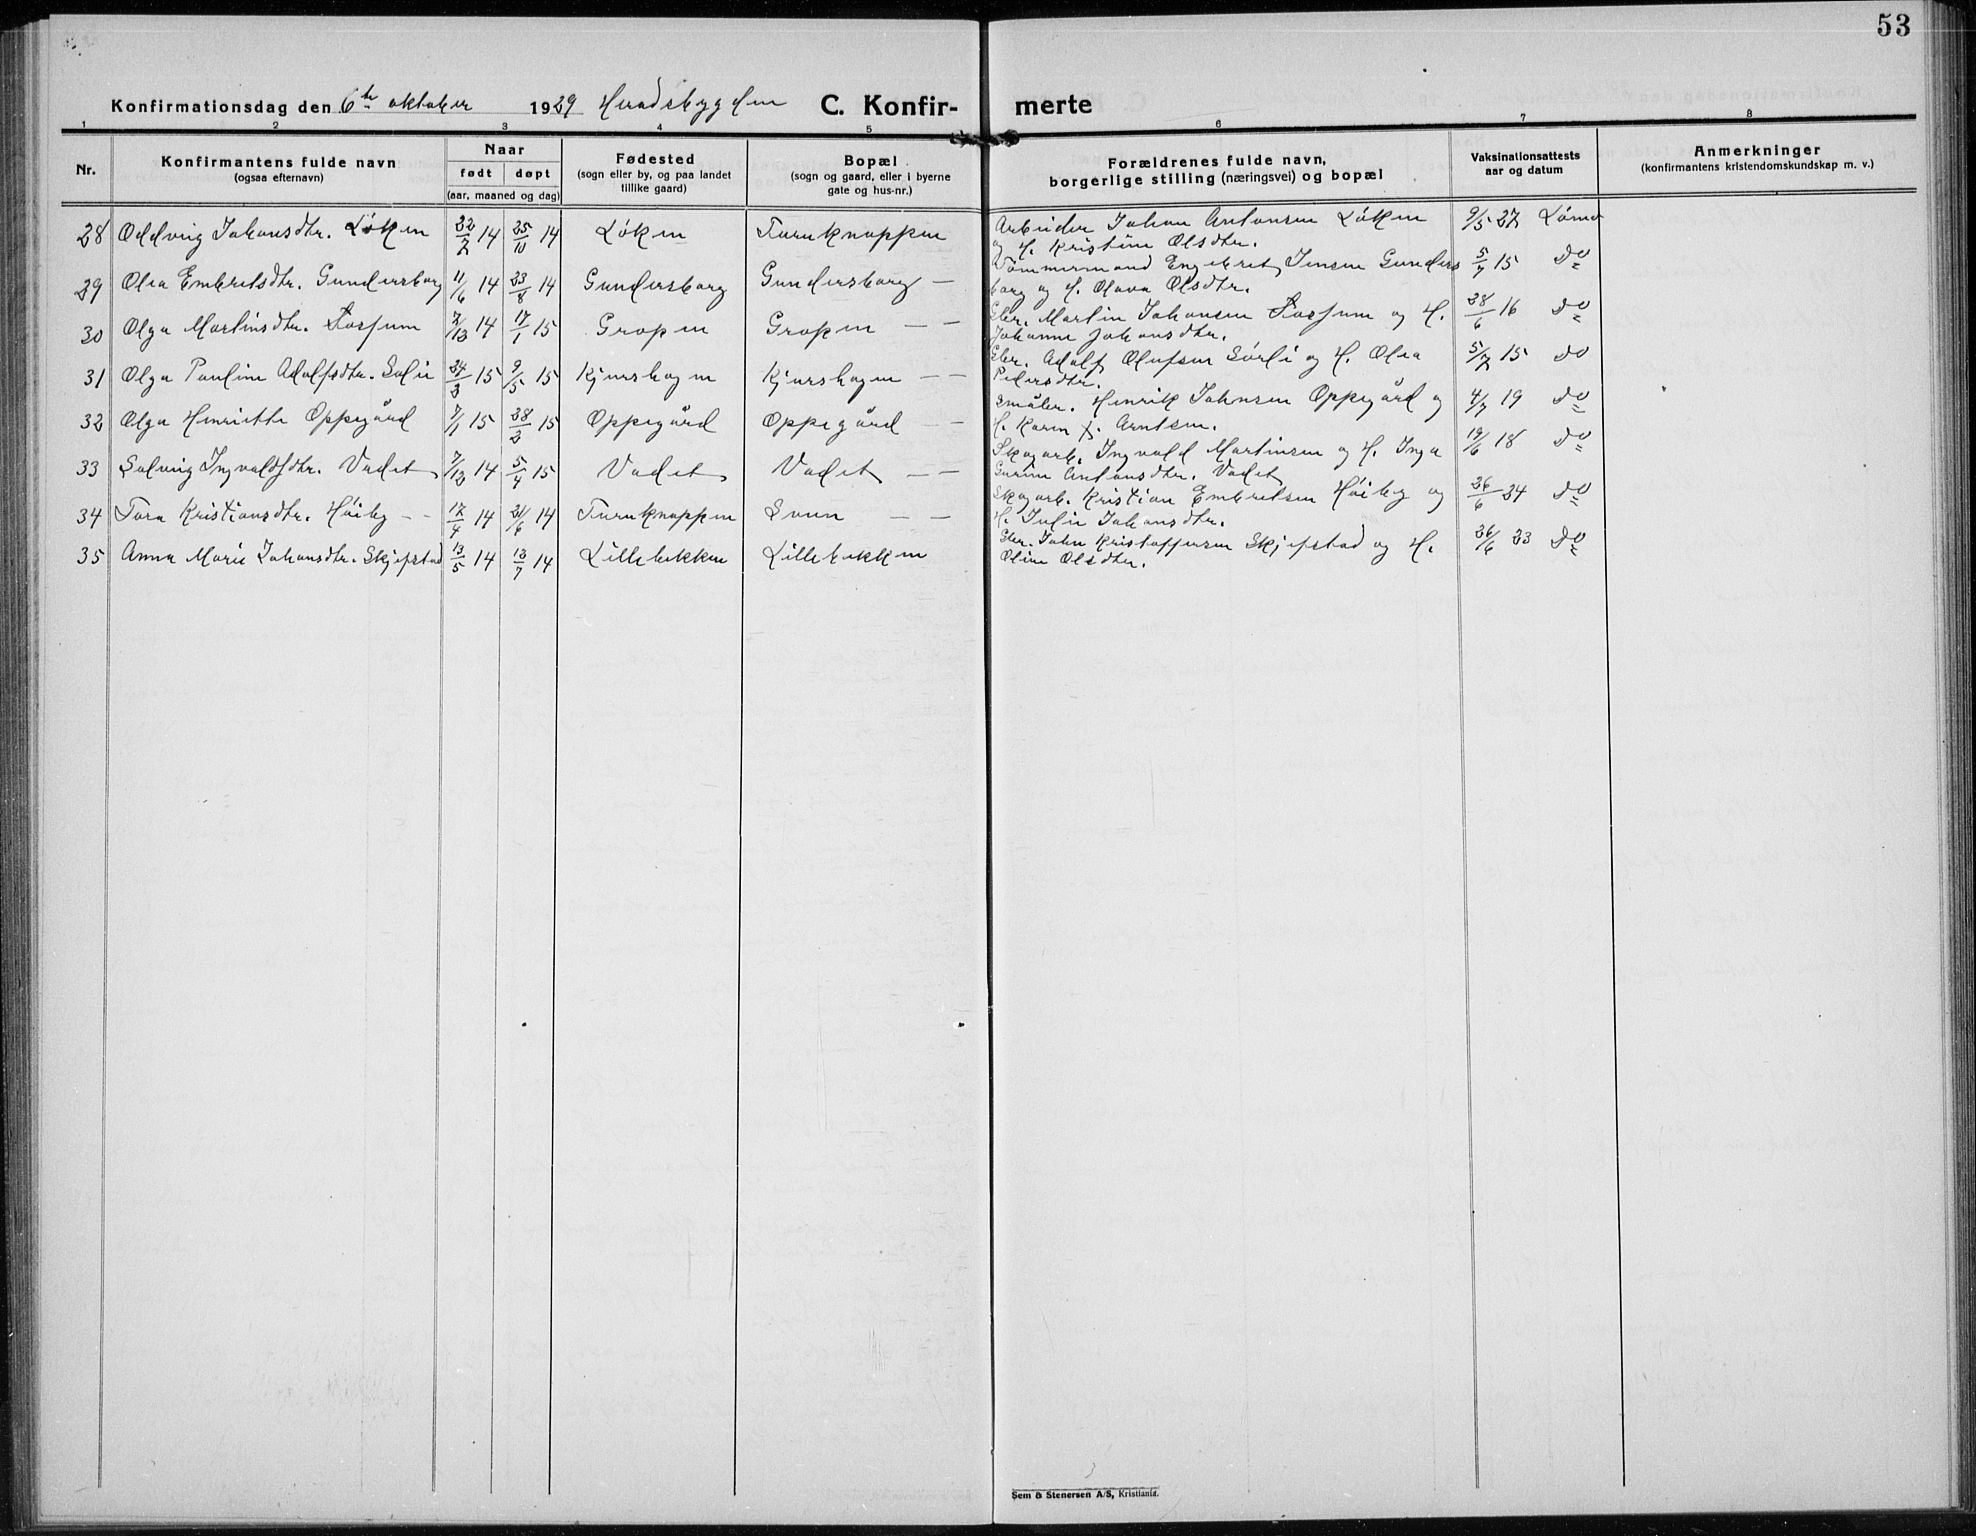 53
Konfirmationsdag den 6te oktober 1929 Heradsbygden C. Konfir- merte
1 2 3 4 5 6 7 8
Nr. Konfirmantens fulde navn (ogsaa efternavn) Naar født døpt (aar, maaned og dag) Fødested (sogn eller by, og paa landet tillike gaard) Bopæl (sogn og gaard, eller i byerne gate og hus-nr.) Forældrenes fulde navn, borgerlige stilling (næringsvei) og bopæl Vaksinationsattests aar og datum Anmerkninger (konfirmantens kristendomskundskap m. v.)
28 Oddveig Johansdtr. Løken 22/7 14 25/10 14 Løken Furuknappen Arbeider Johan Antonsen Løken 9/5 27 Lømo
og H. Kristine Olsdtr.
29 Olea Embretsdtr. Gundersborg 11/6 14 23/8 14 Gundersborg Gundersborg — Tømmermand Engebret Jensen Gunders 5/7 15 do
borg og H. Olava Olsdtr.
30 Olga Martinsdtr. Fossum 7/12 14 17/1 15 Gropen Gropen — — Gbr. Martin Johansen Fossum og H. 28/6 16 do
Johanne Johansdtr.
31 Olga Pauline Adolfsdtr. Solie 24/3 15 9/5 15 Kjernshagen Kjernshagen — — Gbr. Adolf Olufsen Sørli og H. Olea 5/7 15 do
Pedersdtr.
32 Olga Henriette Oppegård 7/1 15 28/2 15 Oppegård Oppegård — — Småbr. Henrik Johnsen Oppegård og 4/7 19 do
H. Karen f. Arntsen.
33 Solveig Ingvaldsdtr. Vadet 7/12 14 5/4 15 Vadet Vadet — — Skogarb. Ingvald Martinsen og H. Inga 19/6 18 do
Gurine Antonsdtr. Vadet
34 Tora Kristiansdtr. Høiby — — 17/4 14 21/6 14 Furuknappen Sven — — Skogarb. Kristian Embretsen Høiby og 26/6 24 do
H. Julie Johansdtr.
35 Anna Marie Johansdtr. Skjefstad 13/5 14 12/7 14 Lillebekken Lillebekken Gbr. John Kristoffersen Skjefstad og H. 26/6 23 do
Oline Olsdtr.
Sem & Stenersen A/S, Kristiania.